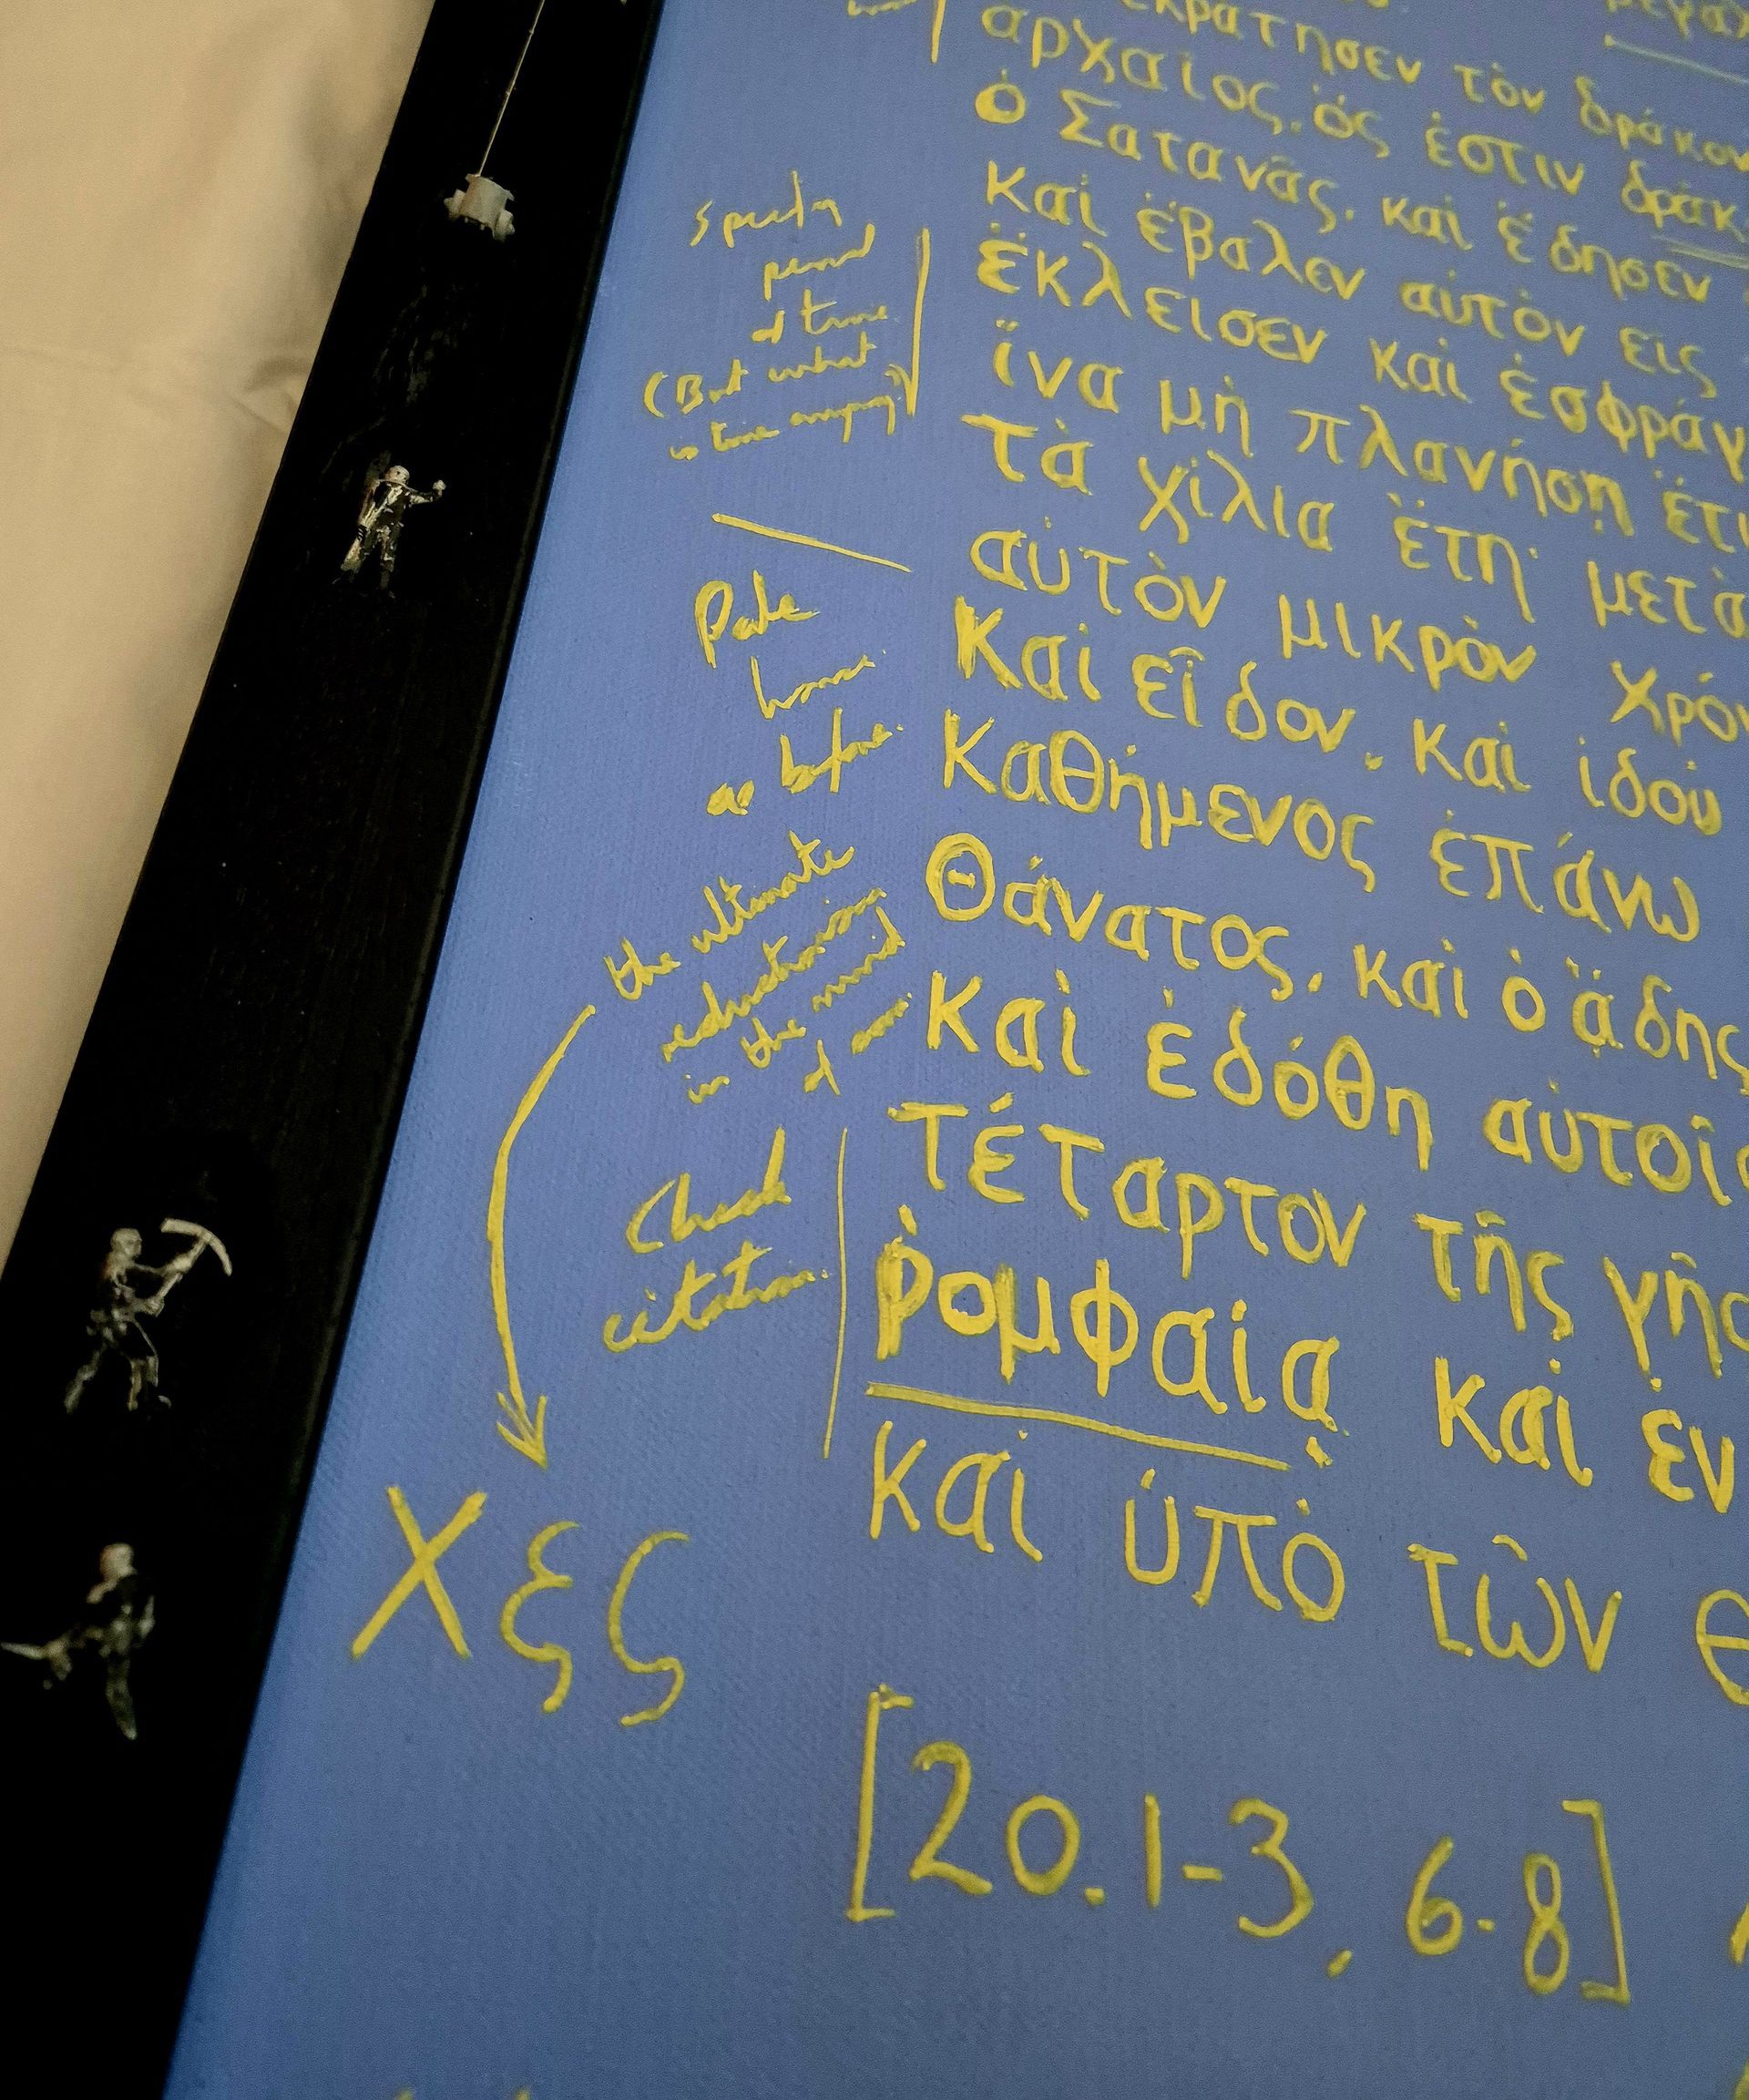 ἐκράτησεν τὸν δράκον
ἀρχαῖος, ὅς ἐστιν δράκ
ὁ Σατανᾶς, καὶ ἔδησεν
καὶ ἔβαλεν αὐτὸν εἰς
ἔκλεισεν καὶ ἐσφράγ
ἵνα μὴ πλανήσῃ ἔτι
τὰ χίλια ἔτη· μετὰ
αὐτὸν μικρὸν χρόν
Καὶ εἶδον, καὶ ἰδοὺ
Καθήμενος ἐπάνω
Θάνατος, καὶ ὁ ᾅδης
καὶ ἐδόθη αὐτοῖς
τέταρτον τῆς γῆς
ῥομφαίᾳ καὶ ἐν
καὶ ὑπὸ τῶν θ
[20.1-3, 6-8]
Specify
period
of time
(But what
is time anyway?)
Pale
horse
as before.
the ultimate
reductionism
in the mind
of man
Check
citation.
Χξς